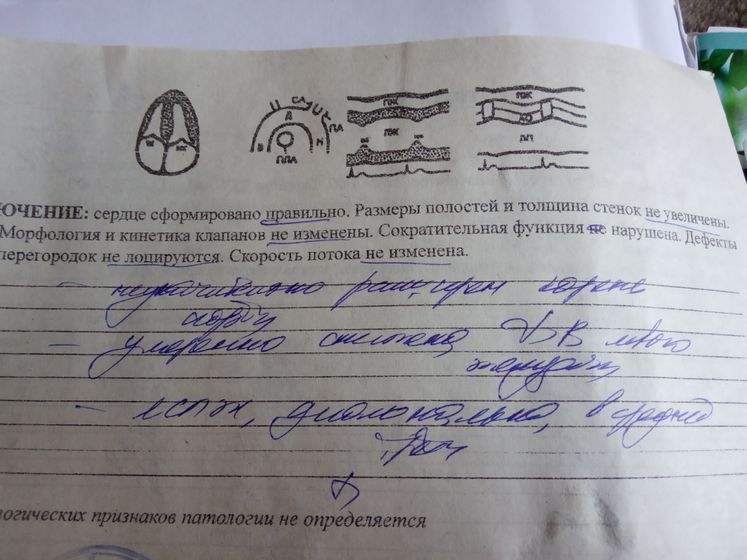 ПЖ
ПЖ
СЛ
ЛА
Л
N
ПЛА
АО
ЛП
ЮЧЕНИЕ: сердце сформировано правильно. Размеры полостей и толщина стенок не увеличены.
Морфология и кинетика клапанов не изменены. Сократительная функция не нарушена. Дефекты
перегородок не лоцируются. Скорость потока не изменена.
- незначительно расширен корень
аорты
- умеренно снижена в лево
желудочк
- диагональная, в средней
трети
логических признаков патологии не определяется